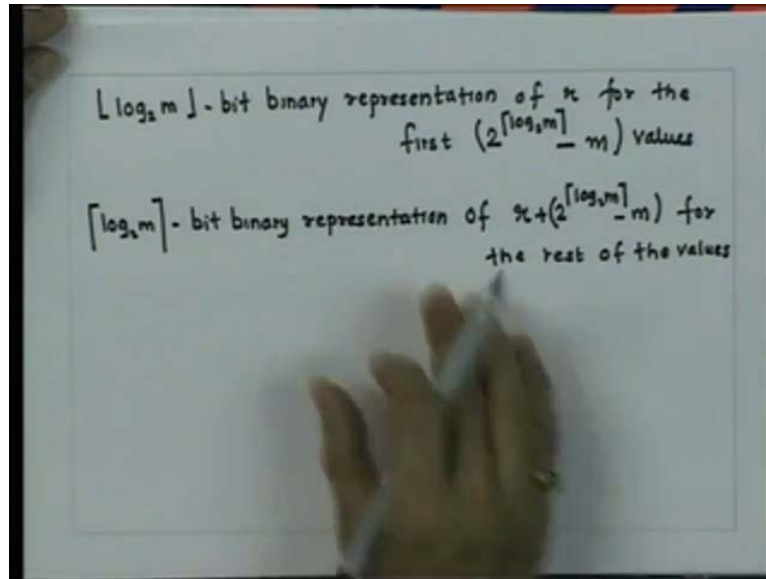 ⌊log₂m⌋-bit binary representation of r for the
first (2^⌈log₂m⌉ - m) values
⌈log₂m⌉-bit binary representation of r+(2^⌈log₂m⌉ - m) for
the rest of the values